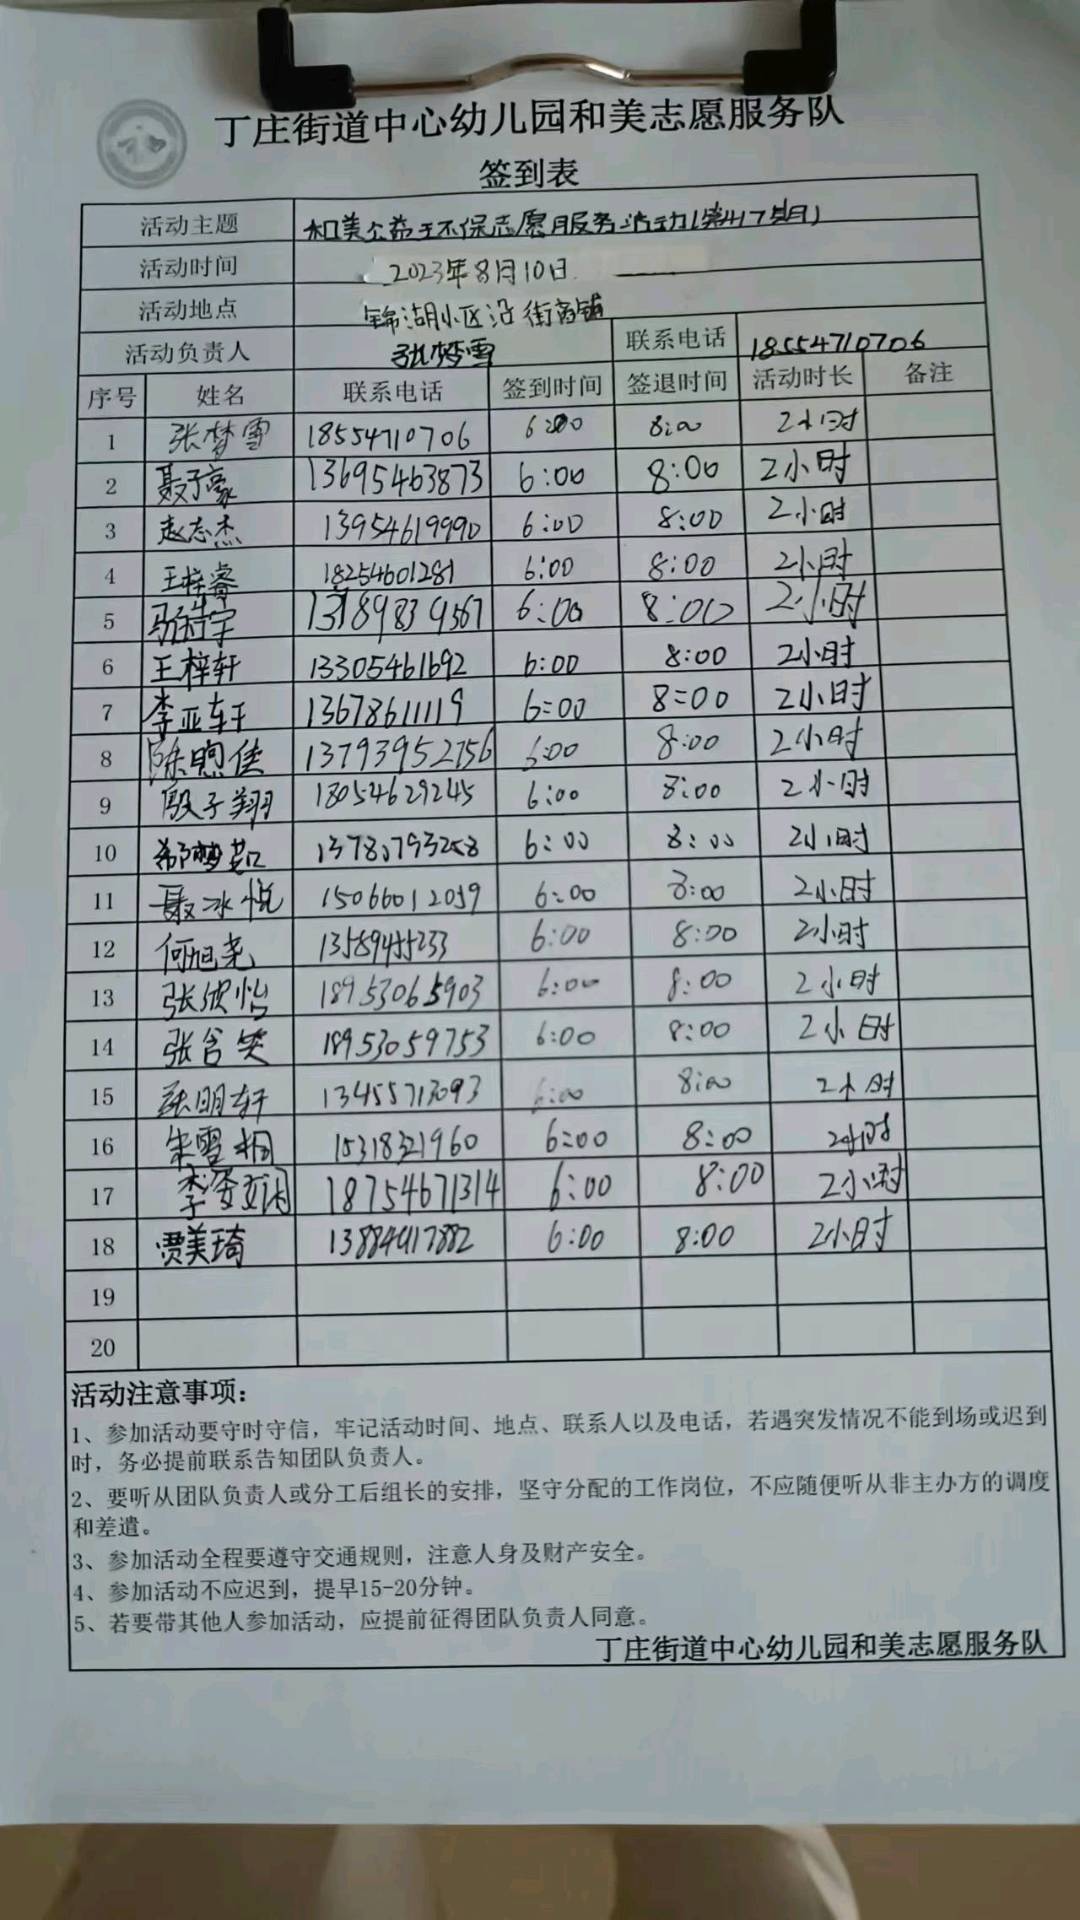 丁庄街道中心幼儿园和美志愿服务队
签到表
活动主题 和美公益环保志愿服务活动(第47期)
活动时间 2023年8月10日
活动地点 锦湖小区沿街商铺
活动负责人 张梦雪 联系电话 18554710706
序号 姓名 联系电话 签到时间 签退时间 活动时长 备注
1 张梦雪 18554710706 6:00 8:00 2小时
2 聂子豪 13695463873 6:00 8:00 2小时
3 赵志杰 13954619990 6:00 8:00 2小时
4 王梓睿 18254601281 6:00 8:00 2小时
5 13189839567 6:00 8:00 2小时
6 王梓轩 13305461692 6:00 8:00 2小时
7 李亚轩 13678611119 6:00 8:00 2小时
8 陈煦佳 13793952756 6:00 8:00 2小时
9 殷子翔 18054629245 6:00 8:00 2小时
10 6:00 8:00 2小时
11 聂冰悦 15066012059 6:00 8:00 2小时
12 何旭尧 13589455233 6:00 8:00 2小时
13 张欣怡 18953065903 6:00 8:00 2小时
14 张含笑 18953059753 6:00 8:00 2小时
15 张明轩 13455713093 6:00 8:00 2小时
16 朱雪桐 15318321960 6:00 8:00 2小时
17 18754671314 6:00 8:00 2小时
18 贾美琦 13884917882 6:00 8:00 2小时
19
20
活动注意事项:
1、参加活动要守时守信，牢记活动时间、地点、联系人以及电话，若遇突发情况不能到场或迟到
时，务必提前联系告知团队负责人。
2、要听从团队负责人或分工后组长的安排，坚守分配的工作岗位，不应随便听从非主办方的调度
和差遣。
3、参加活动全程要遵守交通规则，注意人身及财产安全。
4、参加活动不应迟到，提早15-20分钟。
5、若要带其他人参加活动，应提前征得团队负责人同意。
丁庄街道中心幼儿园和美志愿服务队